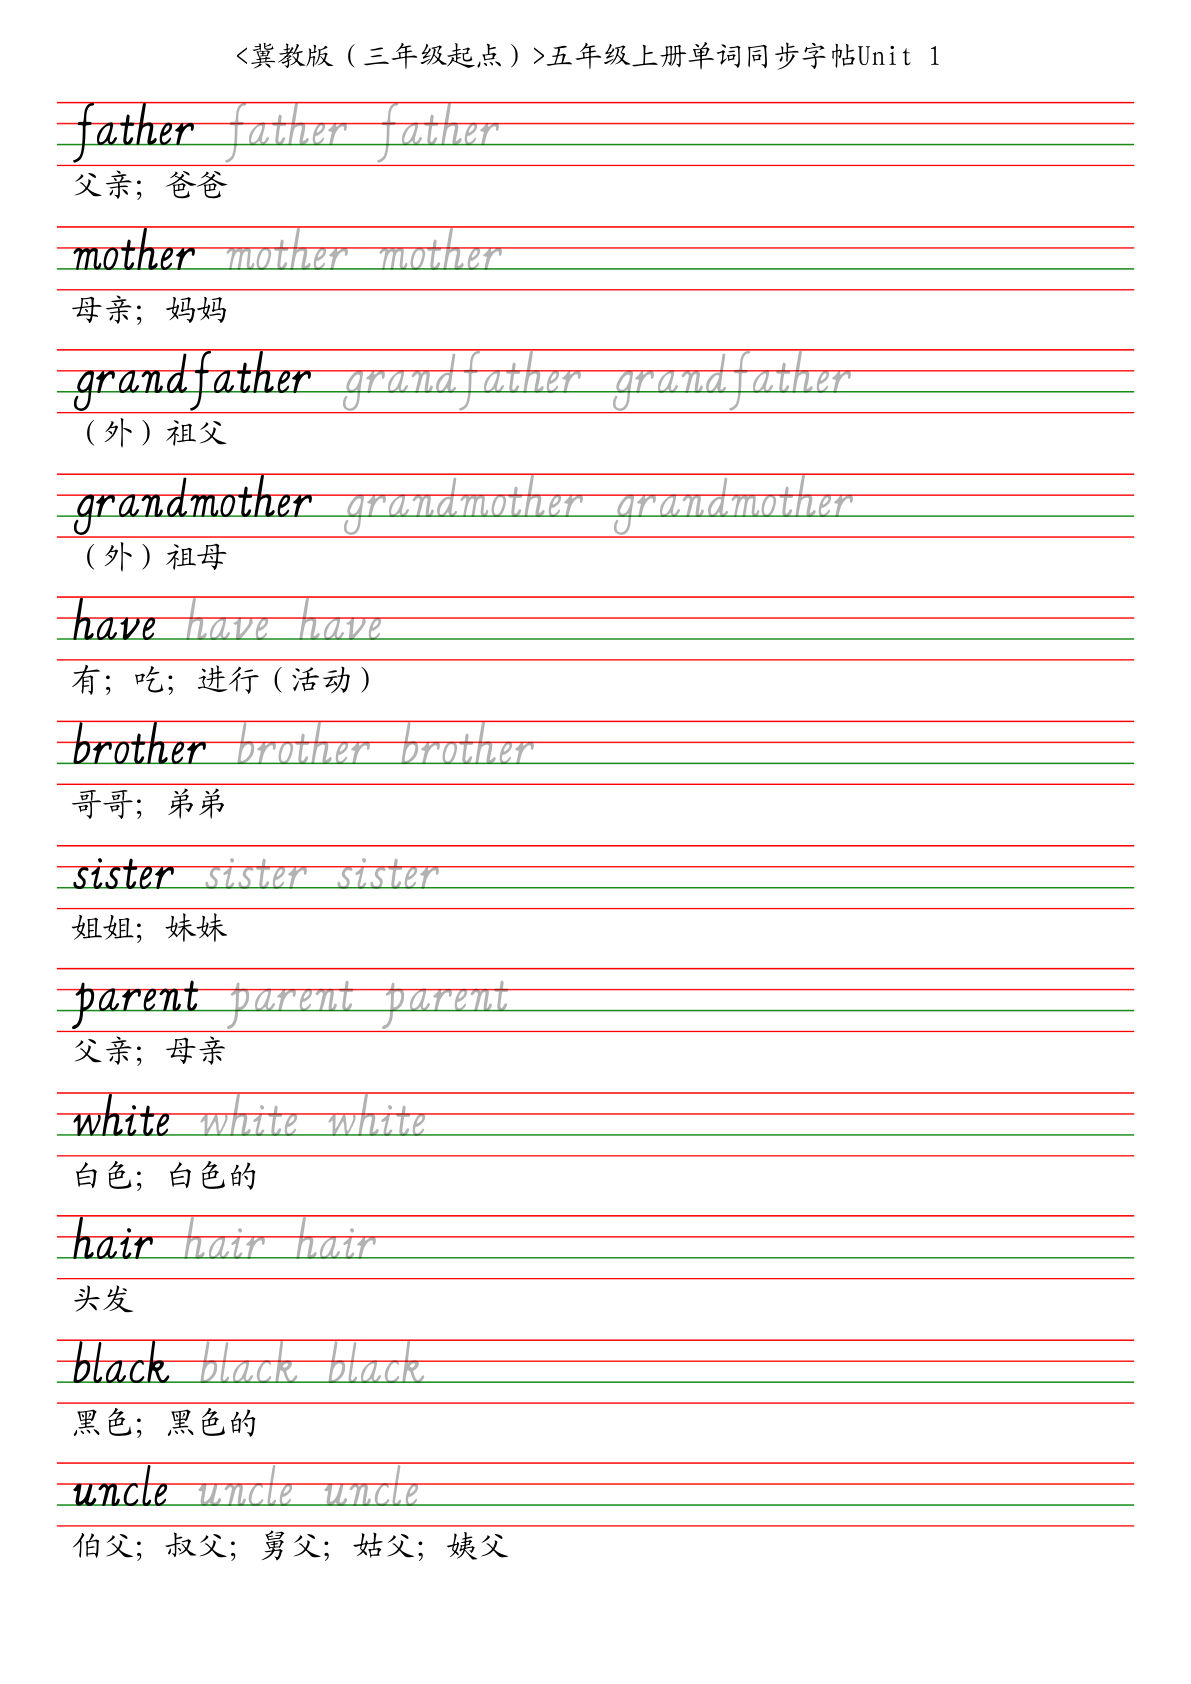 <冀教版（三年级起点）>五年级上册单词同步字帖Unit 1
father father father
父亲；爸爸
mother mother mother
母亲；妈妈
grandfather grandfather grandfather
（外）祖父
grandmother grandmother grandmother
（外）祖母
have have have
有；吃；进行（活动）
brother brother brother
哥哥；弟弟
sister sister sister
姐姐；妹妹
parent parent parent
父亲；母亲
white white white
白色；白色的
hair hair hair
头发
black black black
黑色；黑色的
uncle uncle uncle
伯父；叔父；舅父；姑父；姨父